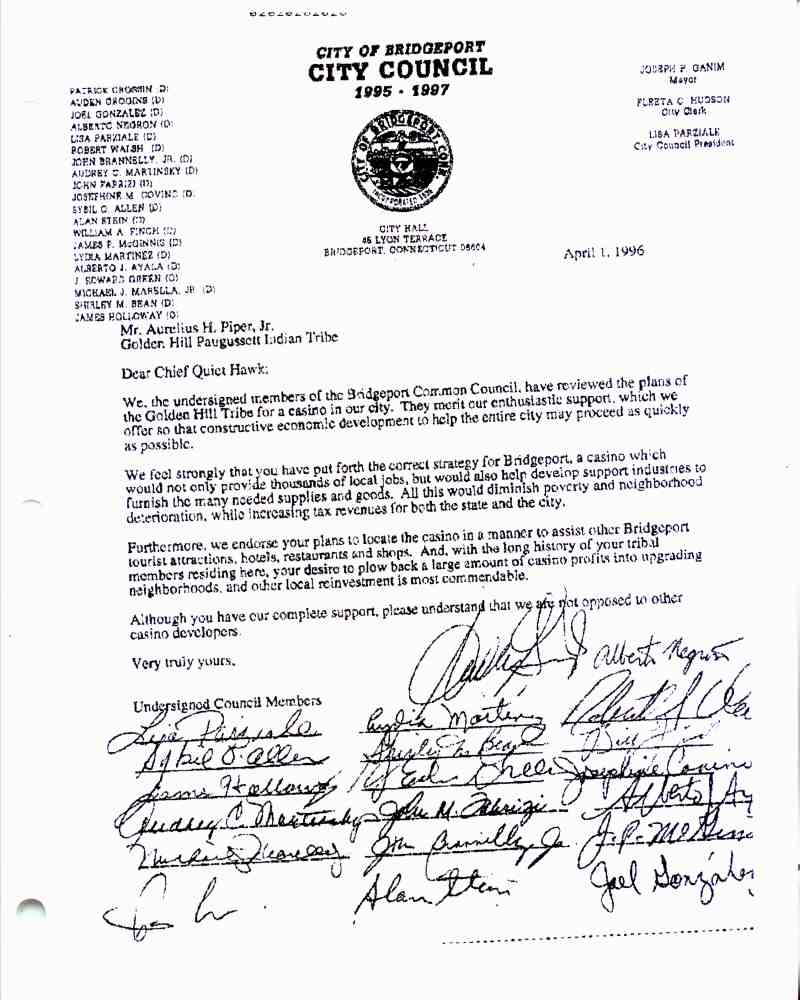 CITY OF BRIDGEPORT
CITY COUNCIL
1995 - 1997
PATRICK CROSSIN (D)
AUDEN GROGINS (D)
JOEL GONZALEZ (D)
ALBERTO NEGRON (D)
LISA PARZIALE (D)
ROBERT WALSH (D)
JOHN BRANNELLY, JR. (D)
AUDREY C. MARTINSKY (D)
JOHN FABRIZI (D)
JOSEPHINE M. COVINO (D)
SYBIL O. ALLEN (D)
ALAN STEIN (D)
WILLIAM A. FINCH (D)
JAMES P. McGINNIS (D)
LYDIA MARTINEZ (D)
ALBERTO J. AYALA (D)
J. EDWARD GREEN (D)
MICHAEL J. MARELLA, JR. (D)
SHIRLEY M. BEAN (D)
JAMES HOLLOWAY (D)
JOSEPH P. GANIM
Mayor
FLEETA C. HUDSON
City Clerk
LISA PARZIALE
City Council President
CITY OF BRIDGEPORT, CONN.
INCORPORATED 1836
CITY HALL
45 LYON TERRACE
BRIDGEPORT, CONNECTICUT 06604
April 1, 1996
Mr. Aurelius H. Piper, Jr.
Golden Hill Paugussett Indian Tribe
Dear Chief Quiet Hawk:
We, the undersigned members of the Bridgeport Common Council, have reviewed the plans of
the Golden Hill Tribe for a casino in our city. They merit our enthusiastic support, which we
offer so that constructive economic development to help the entire city may proceed as quickly
as possible.
We feel strongly that you have put forth the correct strategy for Bridgeport, a casino which
would not only provide thousands of local jobs, but would also help develop support industries to
furnish the many needed supplies and goods. All this would diminish poverty and neighborhood
deterioration, while increasing tax revenues for both the state and the city.
Furthermore, we endorse your plans to locate the casino in a manner to assist other Bridgeport
tourist attractions, hotels, restaurants and shops. And, with the long history of your tribal
members residing here, your desire to plow back a large amount of casino profits into upgrading
neighborhoods, and other local reinvestment is most commendable.
Although you have our complete support, please understand that we are not opposed to other
casino developers.
Very truly yours,
Alberto Negron
Undersigned Council Members
Lisa Parziale Lydia Martinez
Sybil O. Allen Shirley M Bean Bill
James Holloway Josephine Covino
Audrey C. Martinsky John M. Fabrizi Alberto Ay
John Brannelly Jr. J.P. McGinn
Alan Stein Joel Gonzalez